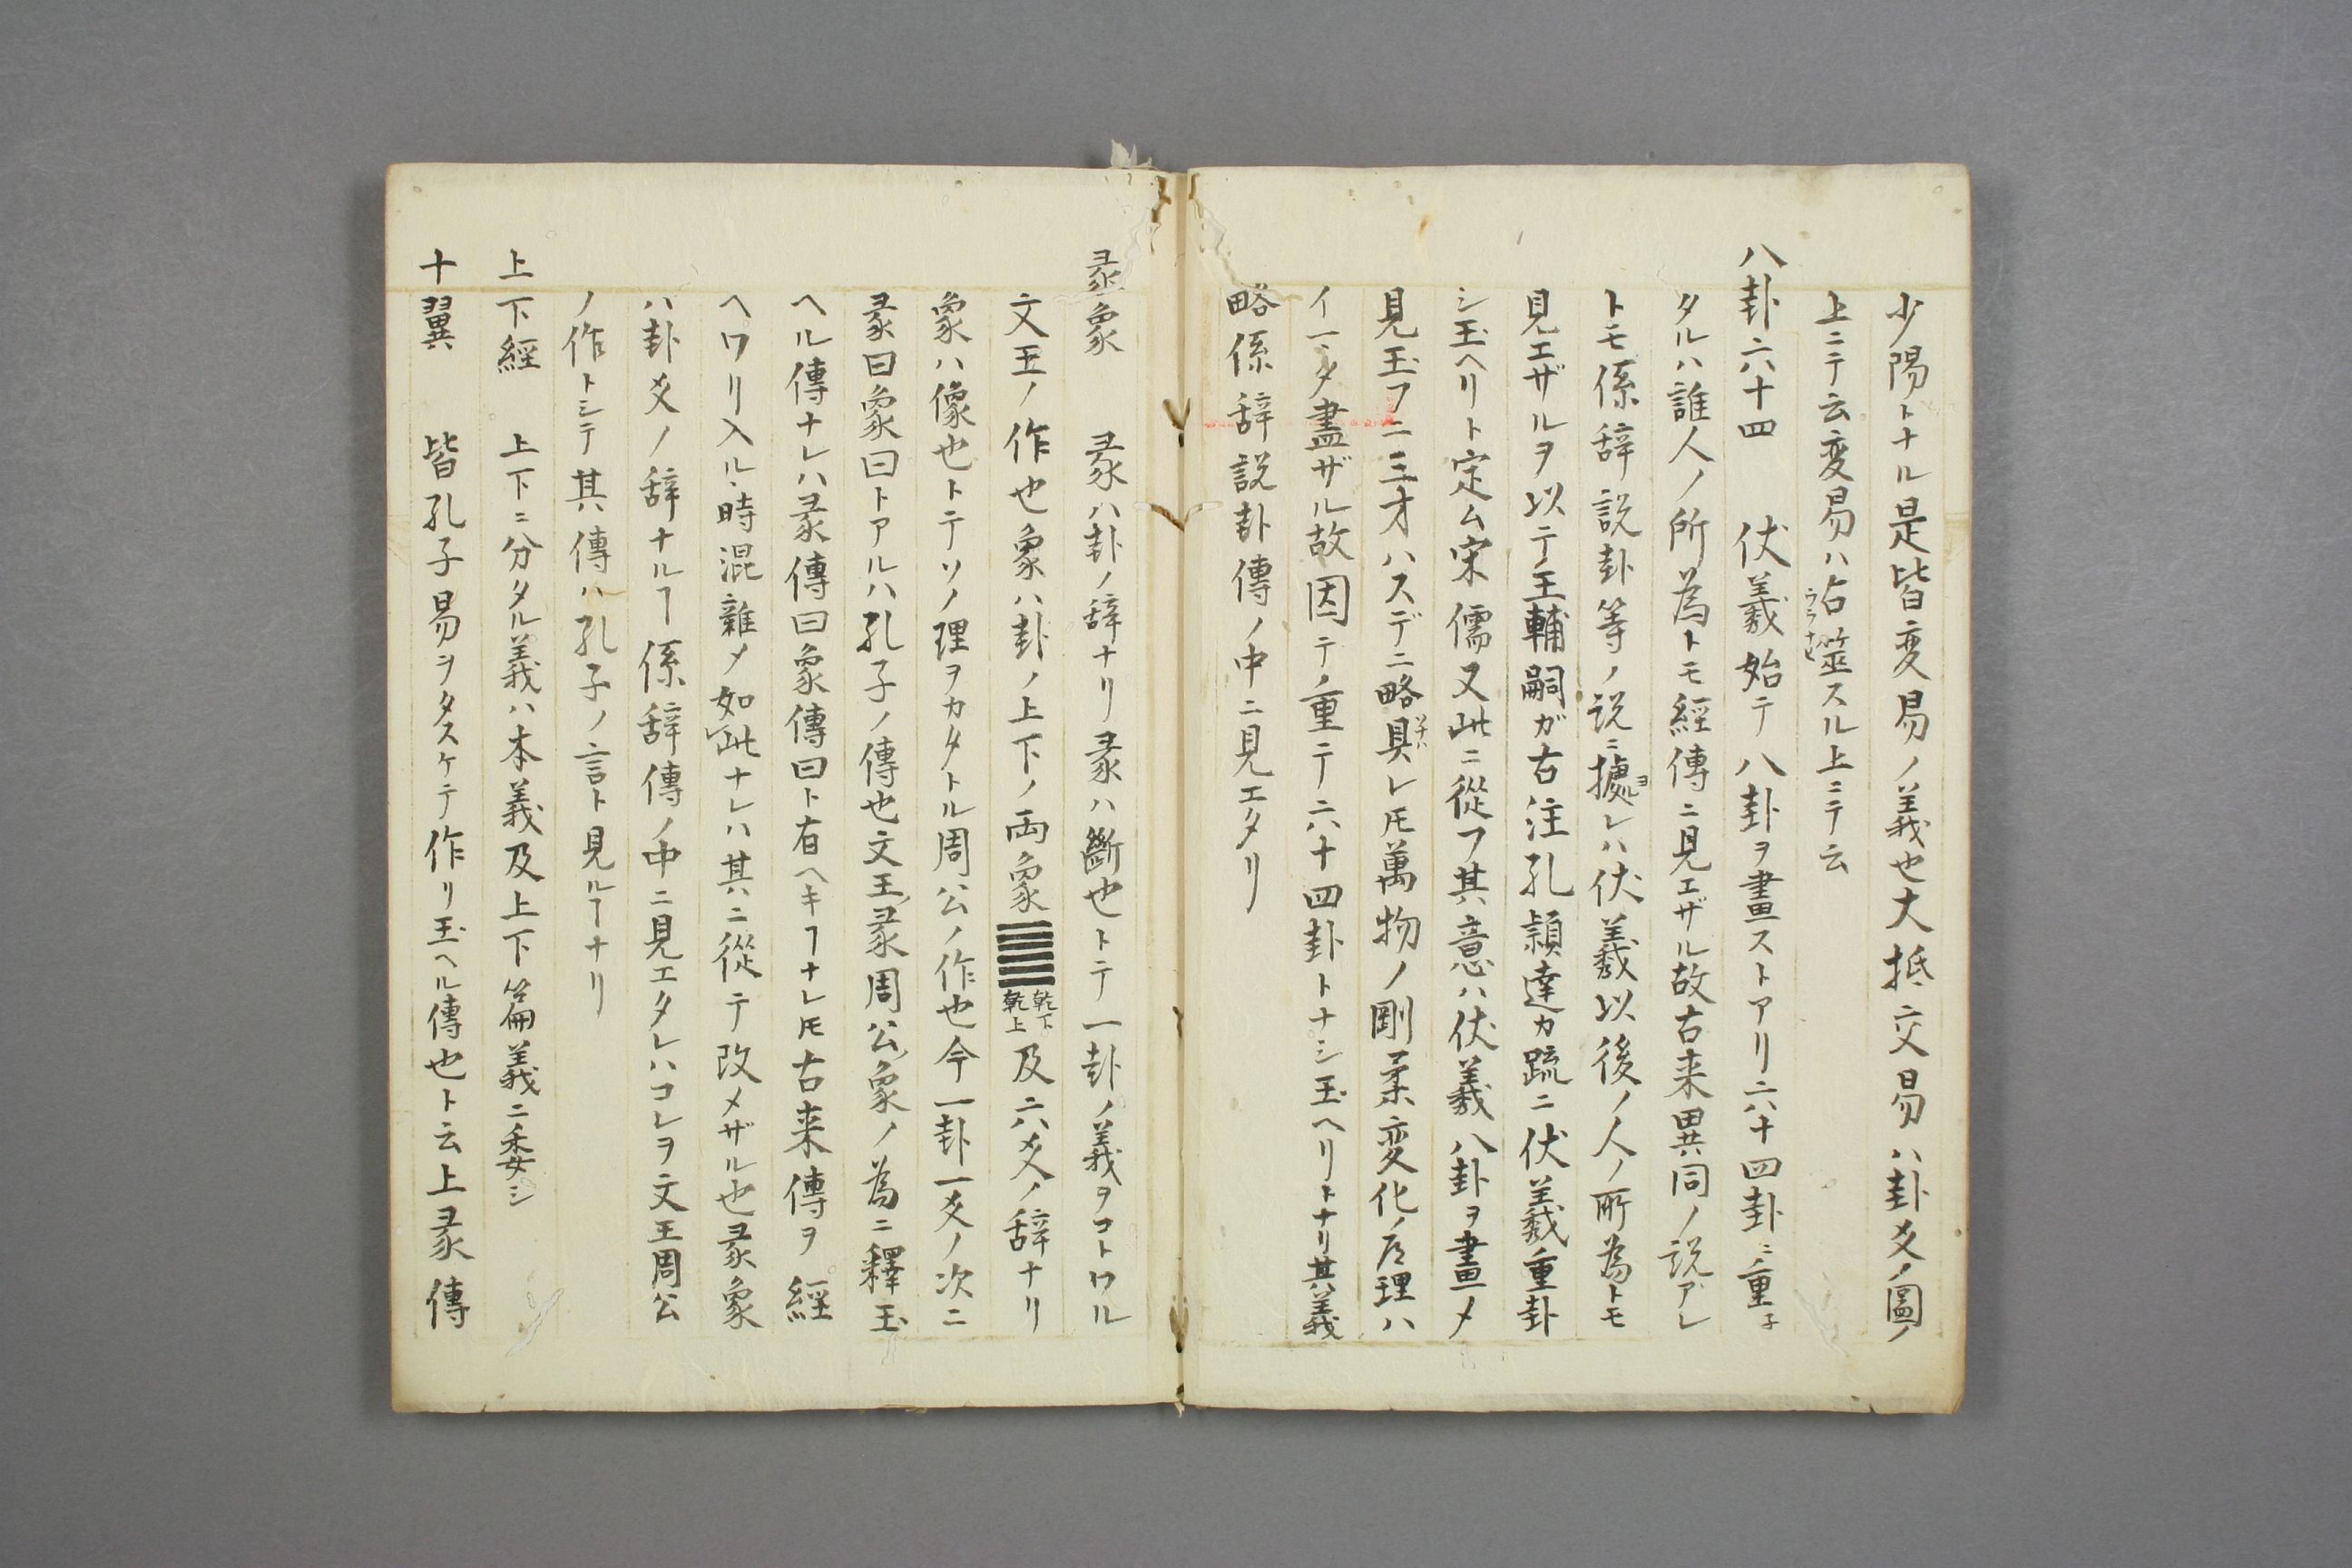 少陽トナル是皆変易ノ義也大抵交易ハ卦爻ノ圖ノ
上ニテ云変易ハ占筮スル上ニテ云
八卦六十四 伏羲始テ八卦ヲ畫ストアリ六十四卦ニ重子
タルハ誰人ノ所為トモ經傳ニ見エザル故古来異同ノ説アレ
トモ係辞説卦等ノ説ニ據レハ伏羲以後ノ人ノ所為トモ
見エザルヲ以テ王輔嗣ガ古注孔頴達カ疏ニ伏羲重卦
シ玉ヘリト定ム宋儒又此ニ從フ其意ハ伏羲八卦ヲ畫メ
見玉フニ三才ハスデニ略具レ𪜈萬物ノ剛柔変化ノ理ハ
イマタ盡ザル故因テ重テ六十四卦トナシ玉ヘリトナリ其義
略係辞説卦傳ノ中ニ見エタリ
彖象 彖ハ卦ノ辞ナリ彖ハ斷也トテ一卦ノ義ヲコトワル
文王ノ作也象ハ卦ノ上下ノ両象乾下乾上及六爻ノ辞ナリ
象ハ像也トテソノ理ヲカタトル周公ノ作也今一卦一爻ノ次ニ
彖曰象曰トアルハ孔子ノ傳也文王彖周公象ノ為ニ釋玉
ヘル傳ナレハ彖傳曰象傳曰ト有ヘキヿナレ𪜈古来傳ヲ經
ヘワリ入ル時混雜メ如此ナレハ其ニ從テ改メザル也彖象
ハ卦爻ノ辞ナルヿ係辞傳ノ中ニ見エタレハコレヲ文王周公
ノ作トシテ其傳ハ孔子ノ言ト見ルヿナリ
上下經 上下ニ分タル義ハ本義及上下篇義ニ委シ
十翼 皆孔子易ヲタスケテ作リ玉ヘル傳也ト云上彖傳